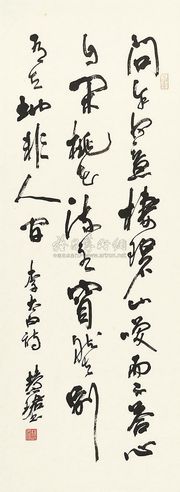 问余何意栖碧山笑而不答心
自闲桃花流水窅然别
有天地非人间
李太白诗